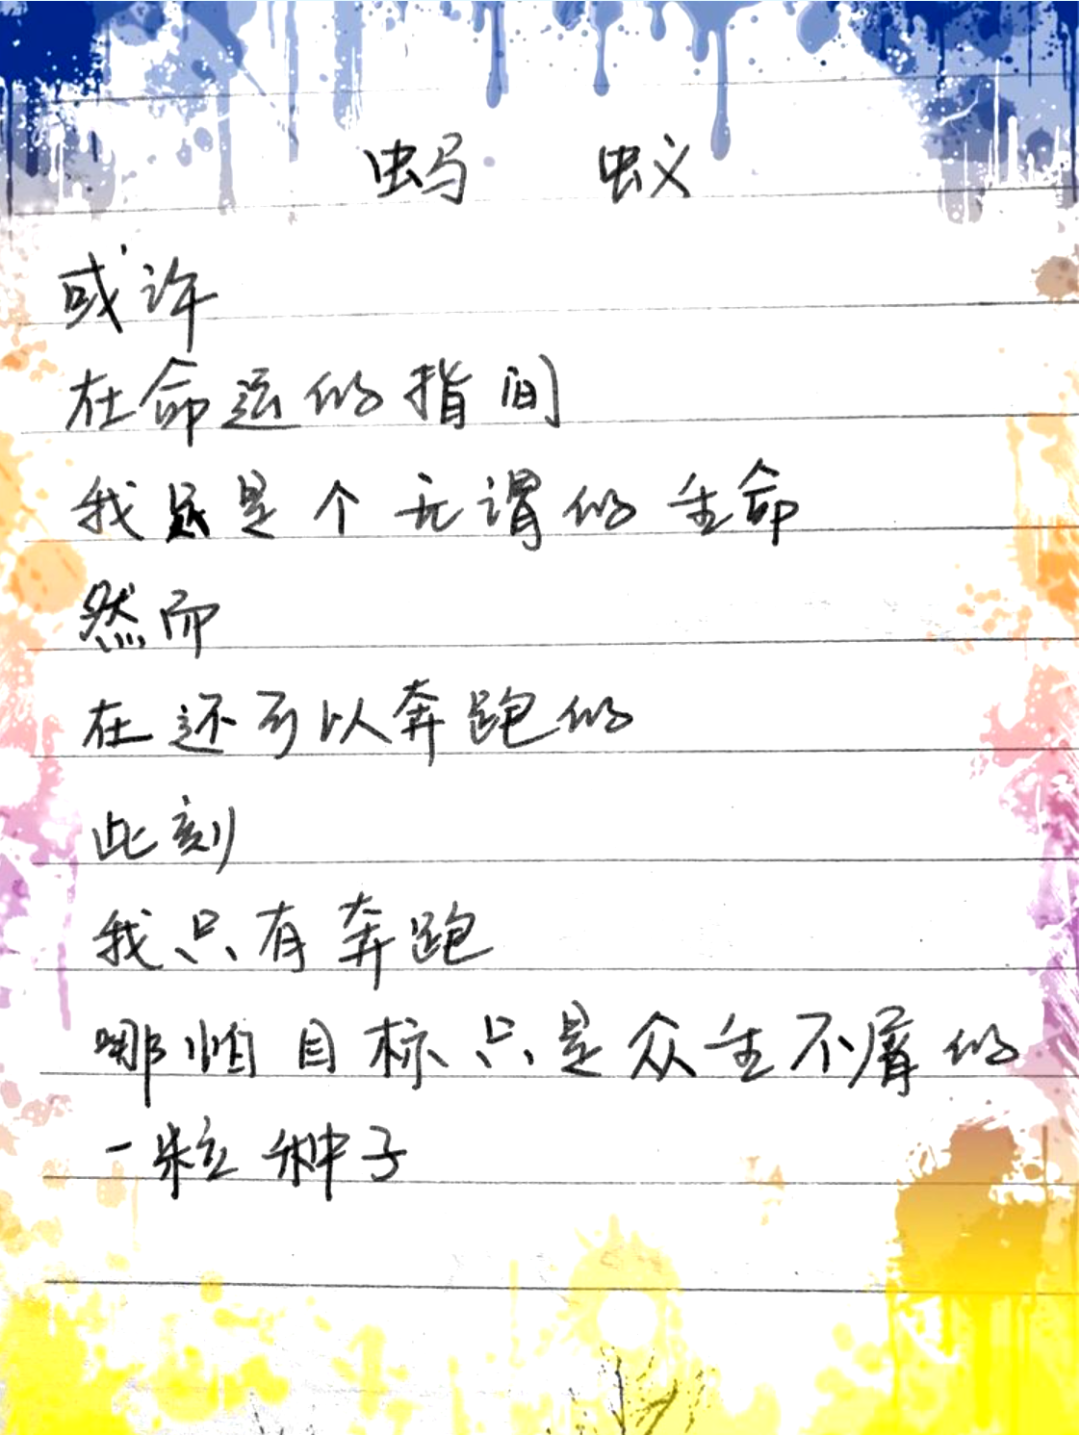 蚂 蚁
或许
在命运的指间
我只是个无谓的生命
然而
在还可以奔跑的
此刻
我只有奔跑
哪怕目标只是众生不屑的
一粒种子